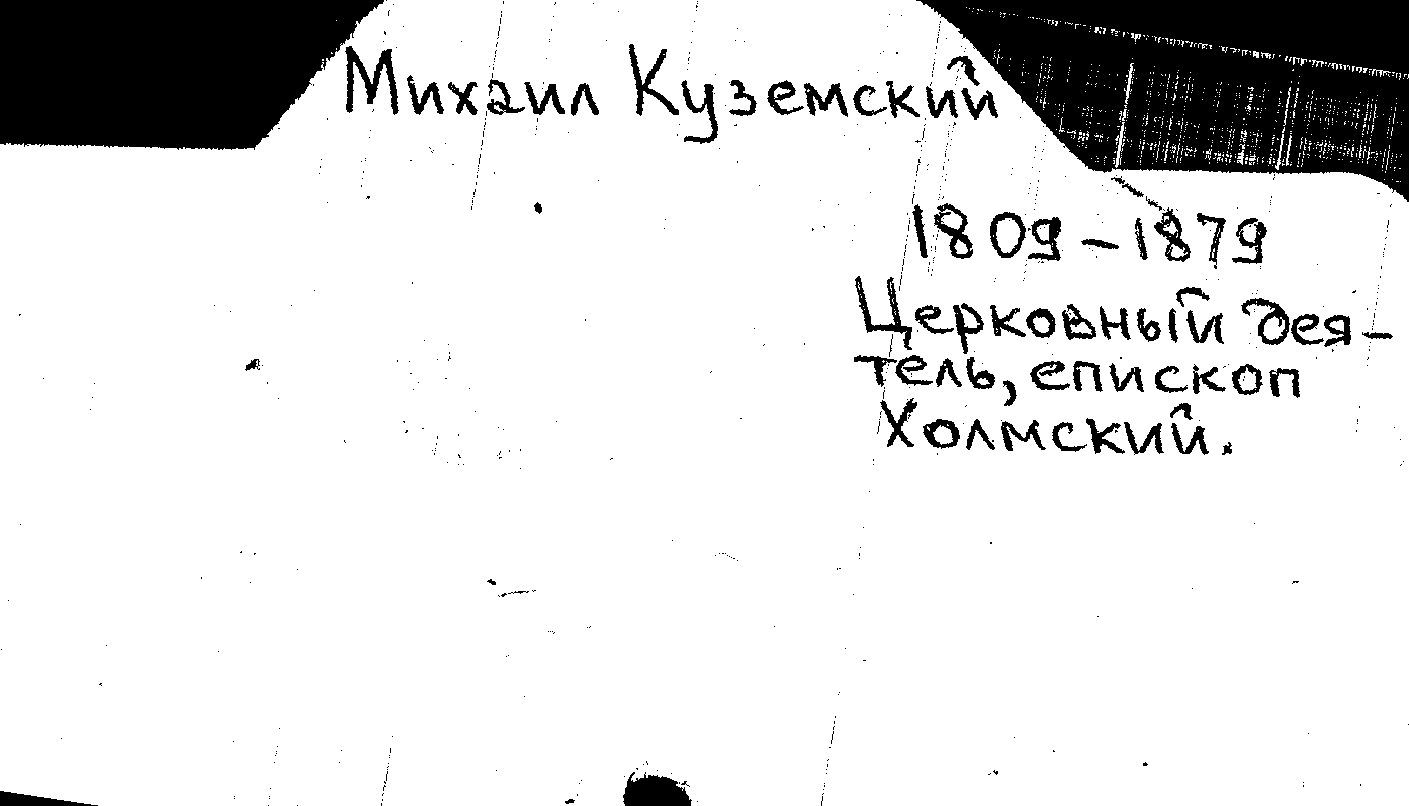 Михаил Куземский
1809-1879
Церковный дея-
тель, епископ
Холмский.